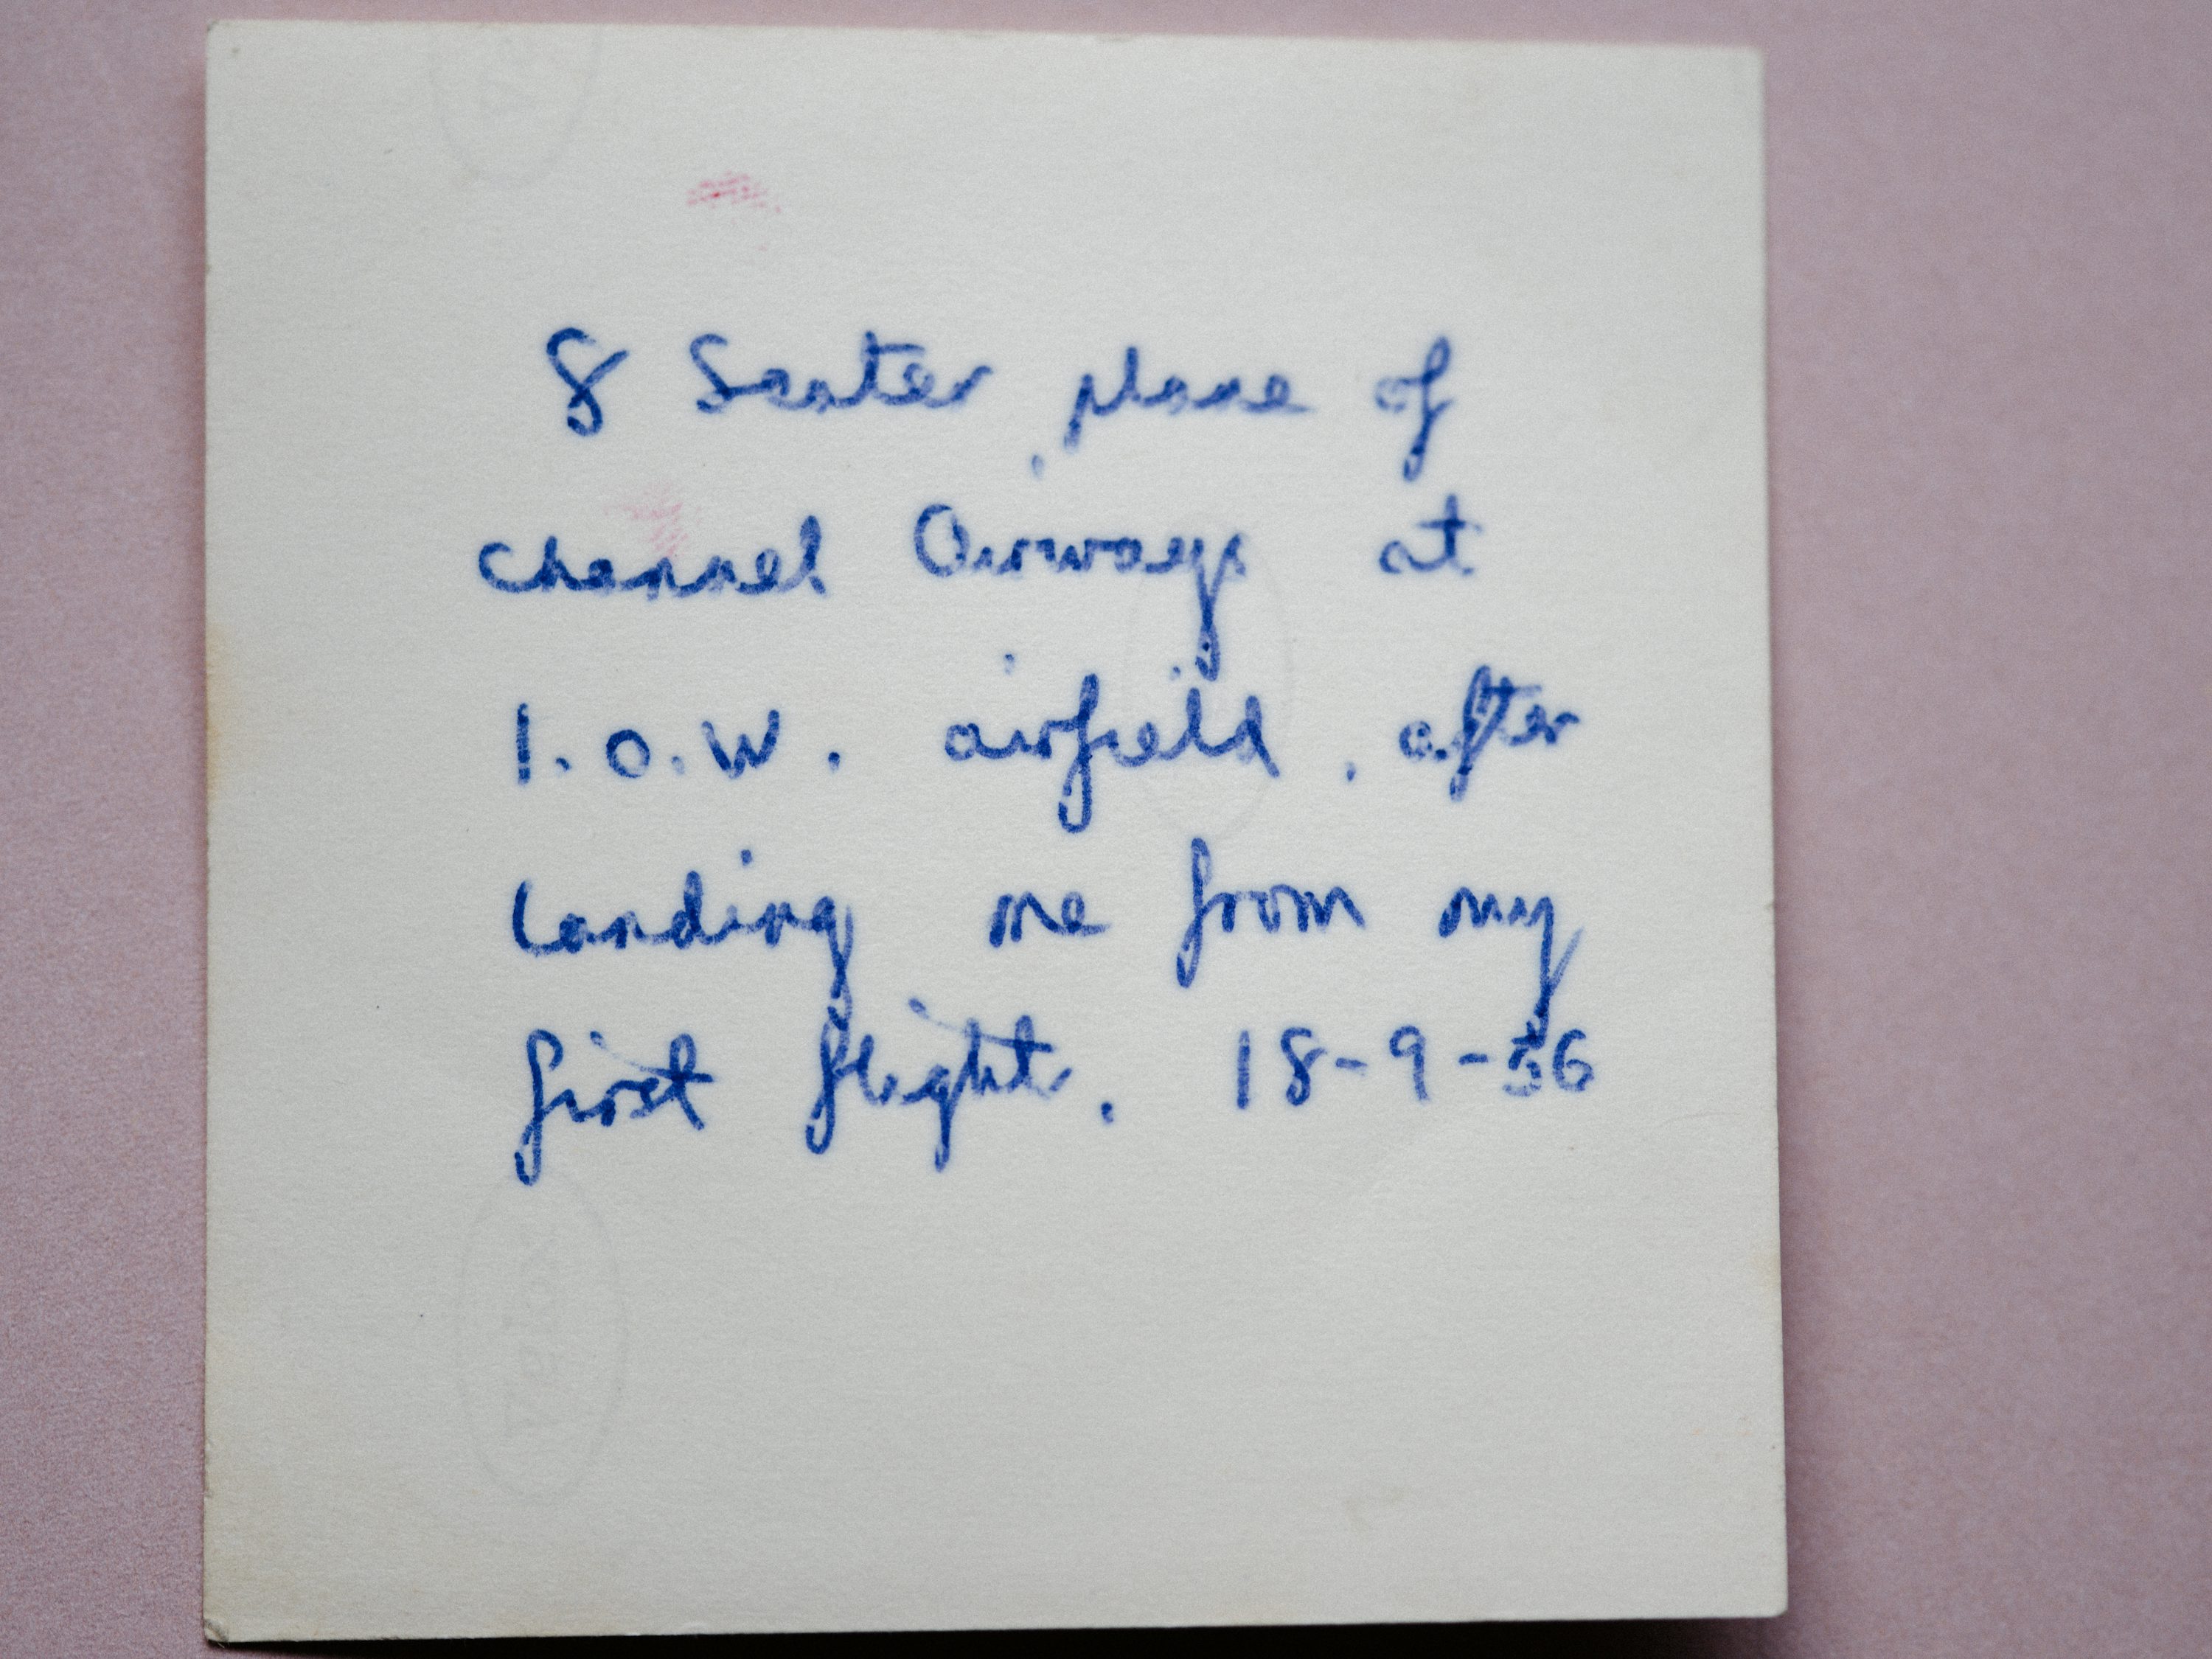 8 Seater plane of
channel Airways at
I.O.W. airfield, after
landing me from my
first flight. 18-9-56